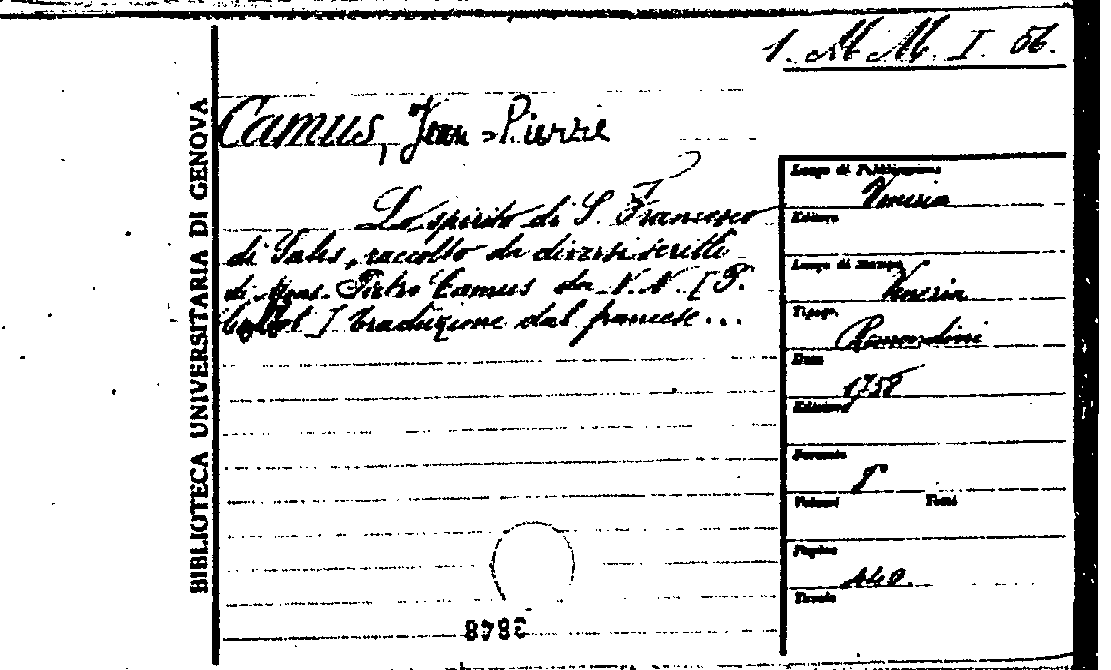 1. M M. I. 56.
BIBLIOTECA UNIVERSITARIA DI GENOVA
Camus, Jean-Pierre
Lo spirito di S. Francesco
di Sales, raccolto da diversi scritti
di Mons. Pietro Camus da N. N. [P.
Collot] traduzione dal francese...
Luogo di Pubblicazione
Venezia
Editore
Luogo di stampa
Venezia
Tipogr.
Remondini
Data
1758
Edizione
Formato
8°
Volumi Tomi
Pagine
440.
Tavole
3848